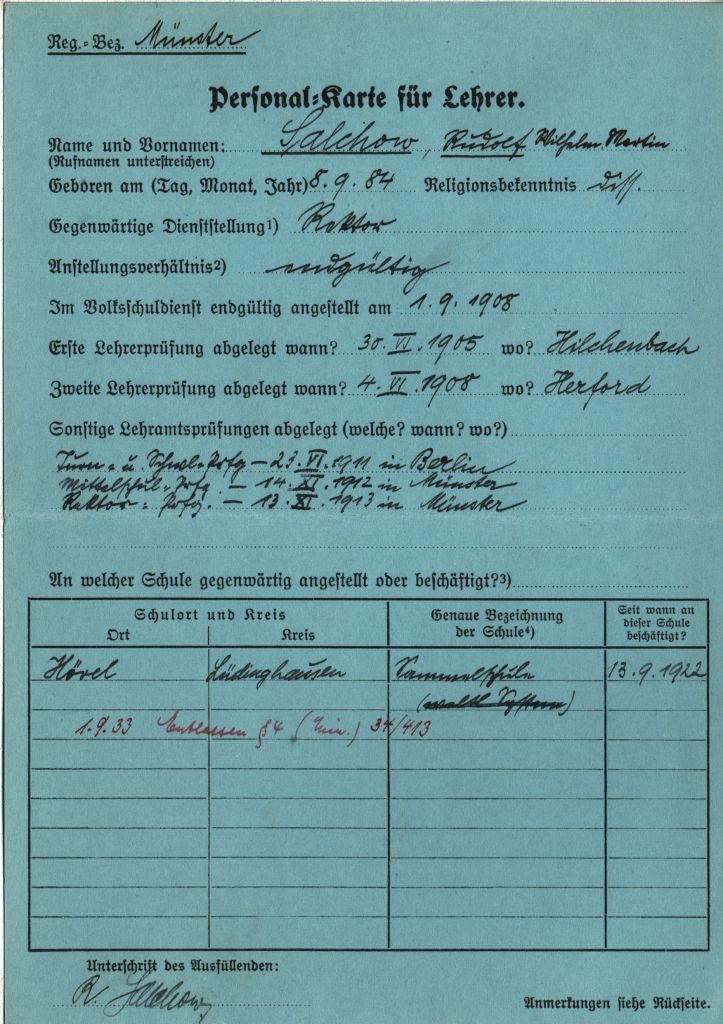 Reg.-Bez. Münster
Personal-Karte für Lehrer.
Name und Vornamen: Salchow, Rudolf Wilhelm Martin
(Rufnamen unterstreichen)
Geboren am (Tag, Monat, Jahr) 8.9.84 Religionsbekenntnis diss.
Gegenwärtige Dienststellung¹) Rektor
Anstellungsverhältnis²) endgültig
Im Volksschuldienst endgültig angestellt am 1.9.1908
Erste Lehrerprüfung abgelegt wann? 30.VI.1905 wo? Hilchenbach
Zweite Lehrerprüfung abgelegt wann? 4.VI.1908 wo? Herford
Sonstige Lehramtsprüfungen abgelegt (welche? wann? wo?)
Turn- u. Schw.-Prfg – 23.VI.1911 in Berlin
Mittelschul-Prfg. – 14.XI.1912 in Münster
Rektor-Prfg. – 13.XI.1913 in Münster
An welcher Schule gegenwärtig angestellt oder beschäftigt?³)
Schulort und Kreis
Ort Kreis
Genaue Bezeichnung
der Schule⁴)
Seit wann an
dieser Schule
beschäftigt?
Hövel Lüdinghausen Sammelschule 13.9.1922
(weltl. System)
1.9.33 Entlassen §4 (Min.) 34/413
Unterschrift des Ausfüllenden:
R. Salchow
Anmerkungen siehe Rückseite.